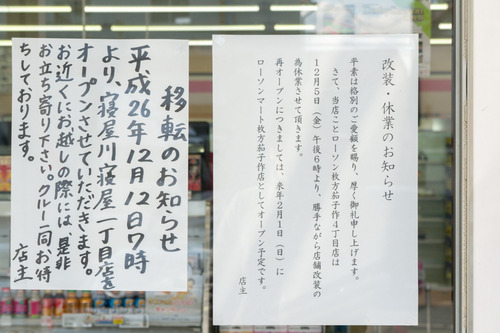 改装・休業のお知らせ
平素は格別のご愛顧を賜り、厚く御礼申し上げます。
さて、当店ことローソン枚方茄子作4丁目店は
12月5日(金)午後6時より、勝手ながら店舗改装の
為休業させて頂きます。
再オープンにつきましては、来年2月1日(日)に
ローソンマート枚方茄子作店としてオープン予定です。
店主
移転のお知らせ
平成26年12月12日7時
より、寝屋川寝屋一丁目店として
オープンさせていただきます。
お近くにお越しの際には、是非
お立ち寄り下さい。クルー一同お待
ちしております。
店主